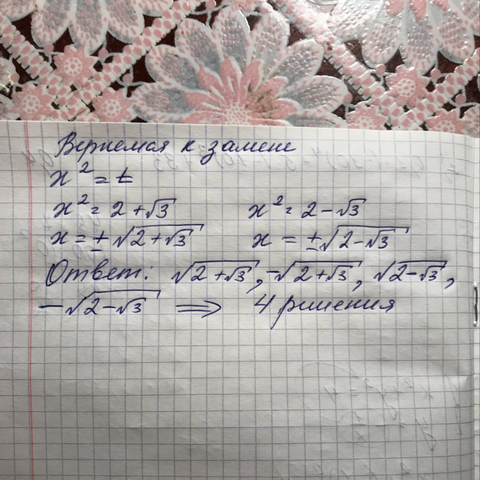 Вернемся к замене
x² = t
x² = 2 + √3    x² = 2 - √3
x = ±√(2 + √3)    x = ±√(2 - √3)
Ответ: √(2 + √3), -√(2 + √3), √(2 - √3),
-√(2 - √3) ⟹ 4 решения